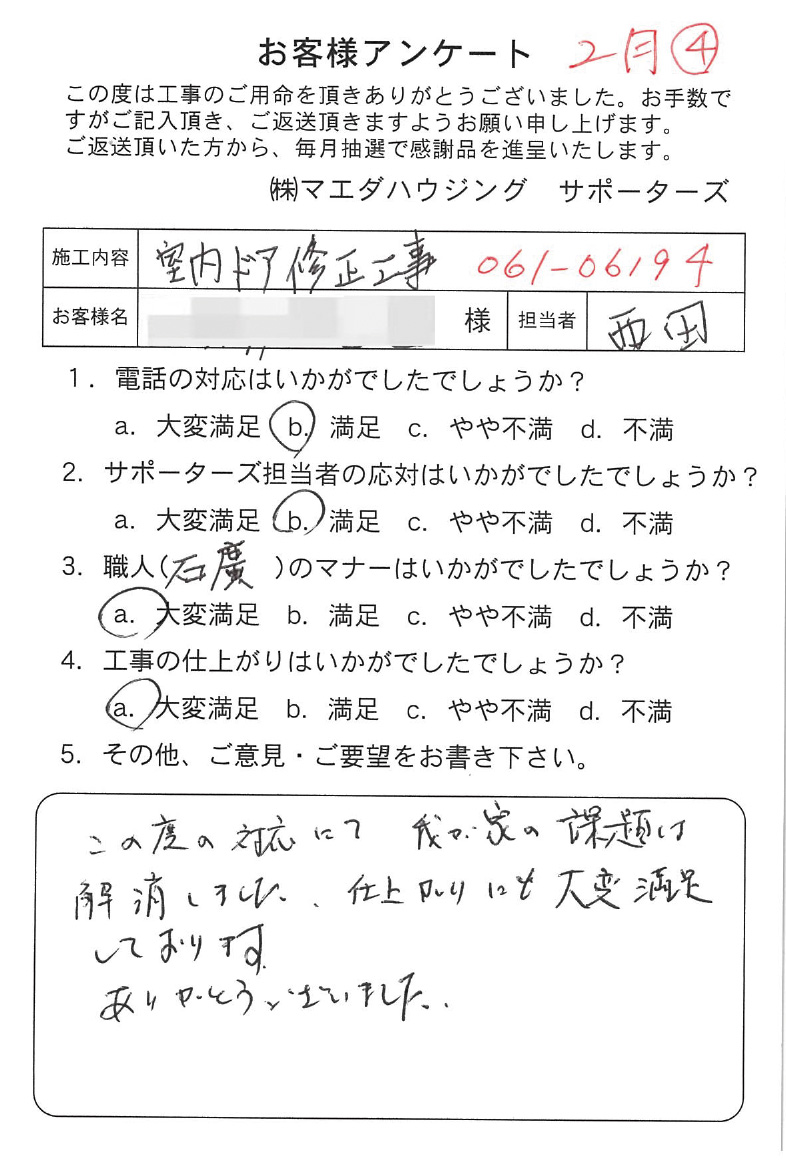 お客様アンケート 2月④
この度は工事のご用命を頂きありがとうございました。お手数で
すがご記入頂き、ご返送頂きますようお願い申し上げます。
ご返送頂いた方から、毎月抽選で感謝品を進呈いたします。
㈱マエダハウジング サポーターズ
施工内容 室内ドア修正工事 061-06194
お客様名 様 担当者 西田
1. 電話の対応はいかがでしたでしょうか？
a. 大変満足 b. 満足 c. やや不満 d. 不満
2. サポーターズ担当者の応対はいかがでしたでしょうか？
a. 大変満足 b. 満足 c. やや不満 d. 不満
3. 職人(石廣)のマナーはいかがでしたでしょうか？
a. 大変満足 b. 満足 c. やや不満 d. 不満
4. 工事の仕上がりはいかがでしたでしょうか？
a. 大変満足 b. 満足 c. やや不満 d. 不満
5. その他、ご意見・ご要望をお書き下さい。
この度の対応にて 我が家の課題は
解消しました。仕上がりにも大変満足
しております。
ありがとうございました。